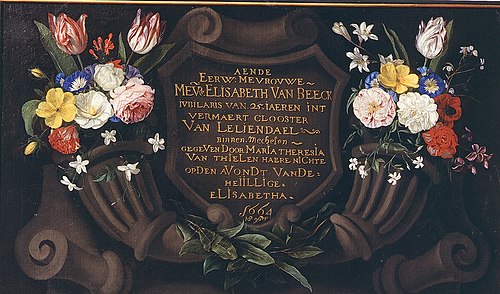 AENDE
EERWe MEVROUWE
MEVe ELISABETH VAN BEECK
IVBILARIS VAN 25 IAEREN INT
VERMAERT CLOOSTER
VAN LELIENDAEL
binnen Mechelen
GEGEVEN DOOR MARIA THERESIA
VAN THIELEN HAERE NICHTE
OP DEN AVONDT VAN DE
HEIILLIGE
ELISABETHA
1664